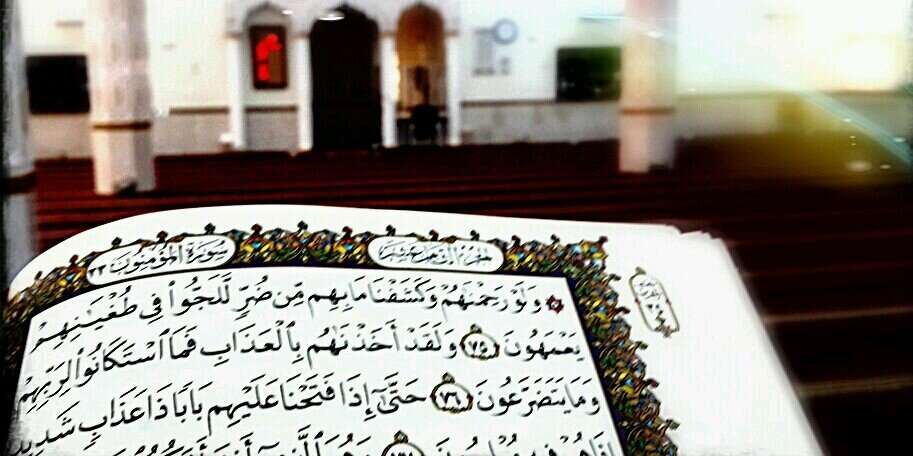 الجزء الثامن عشر
سورة المؤمنون ٢٣
۞ وَلَوْ رَحِمْنَٰهُمْ وَكَشَفْنَا مَا بِهِم مِّن ضُرٍّ لَّلَجُّوا۟ فِى طُغْيَٰنِهِمْ
يَعْمَهُونَ ٧٥ وَلَقَدْ أَخَذْنَٰهُم بِٱلْعَذَابِ فَمَا ٱسْتَكَانُوا۟ لِرَبِّهِمْ
وَمَا يَتَضَرَّعُونَ ٧٦ حَتَّىٰٓ إِذَا فَتَحْنَا عَلَيْهِم بَابًا ذَا عَذَابٍ شَدِيدٍ
إِذَا هُمْ فِيهِ مُبْلِسُونَ ٧٧ وَهُوَ ٱلَّذِىٓ